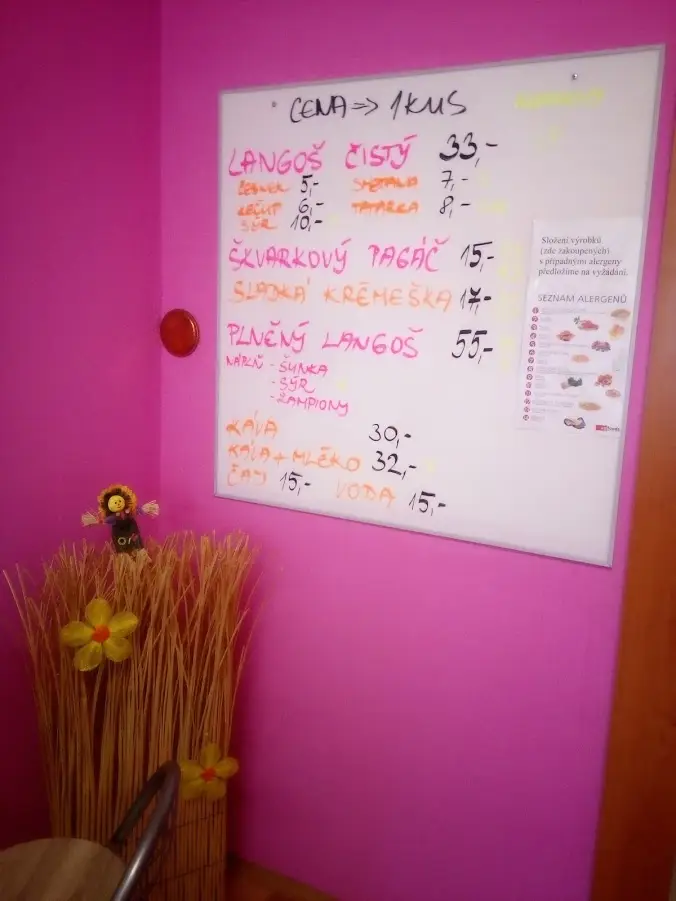 CENA => 1 KUS
LANGOŠ ČISTÝ 33,-
ČESNEK 5,- SMETANA 7,-
KEČUP 6,- TATARKA 8,-
SÝR 10,-
ŠKVARKOVÝ PAGÁČ 15,-
SLADKÁ KRÉMEŠKA 17,-
PLNĚNÝ LANGOŠ 55,-
NÁPLŇ - ŠUNKA
- SÝR
- ŽAMPIONY
KÁVA 30,-
KÁVA + MLÉKO 32,-
ČAJ 15,- VODA 15,-
Složení výrobků
(zde zakoupených)
s případnými alergeny
předložíme na vyžádání.
SEZNAM ALERGENŮ